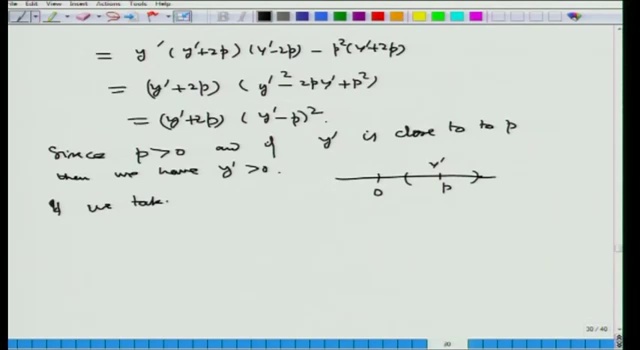 File Edit View Insert Actions Tools Help
= y'(y'+2p)(y'-2p) - p²(y'+2p)
= (y'+2p) (y'² - 2py' + p²)
= (y'+2p) (y'-p)².
Since p>0 and if y' is close to to p
then we have y'>0.
y'
0 p
If we take.
30 / 40
30